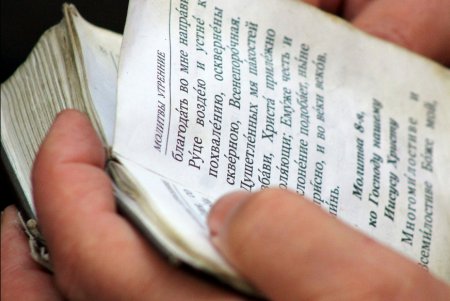 МОЛИТВЫ УТРЕННИЕ
благода́ть во мне напра́ви
Ру́це возде́ю и устне́ к
похвале́нию, оскверне́ны
скве́рною, Всенепоро́чная.
Душетле́нных мя па́костей
ба́ви, Христа́ приле́жно
моля́ющи; Ему́же честь и
лоне́ние подоба́ет, ны́не
ри́сно, и во ве́ки веко́в.
и́нь.
Молитва 8-я,
ко Господу нашему
Иисусу Христу
Многоми́лостиве и
всеми́лостиве Бо́же мой,